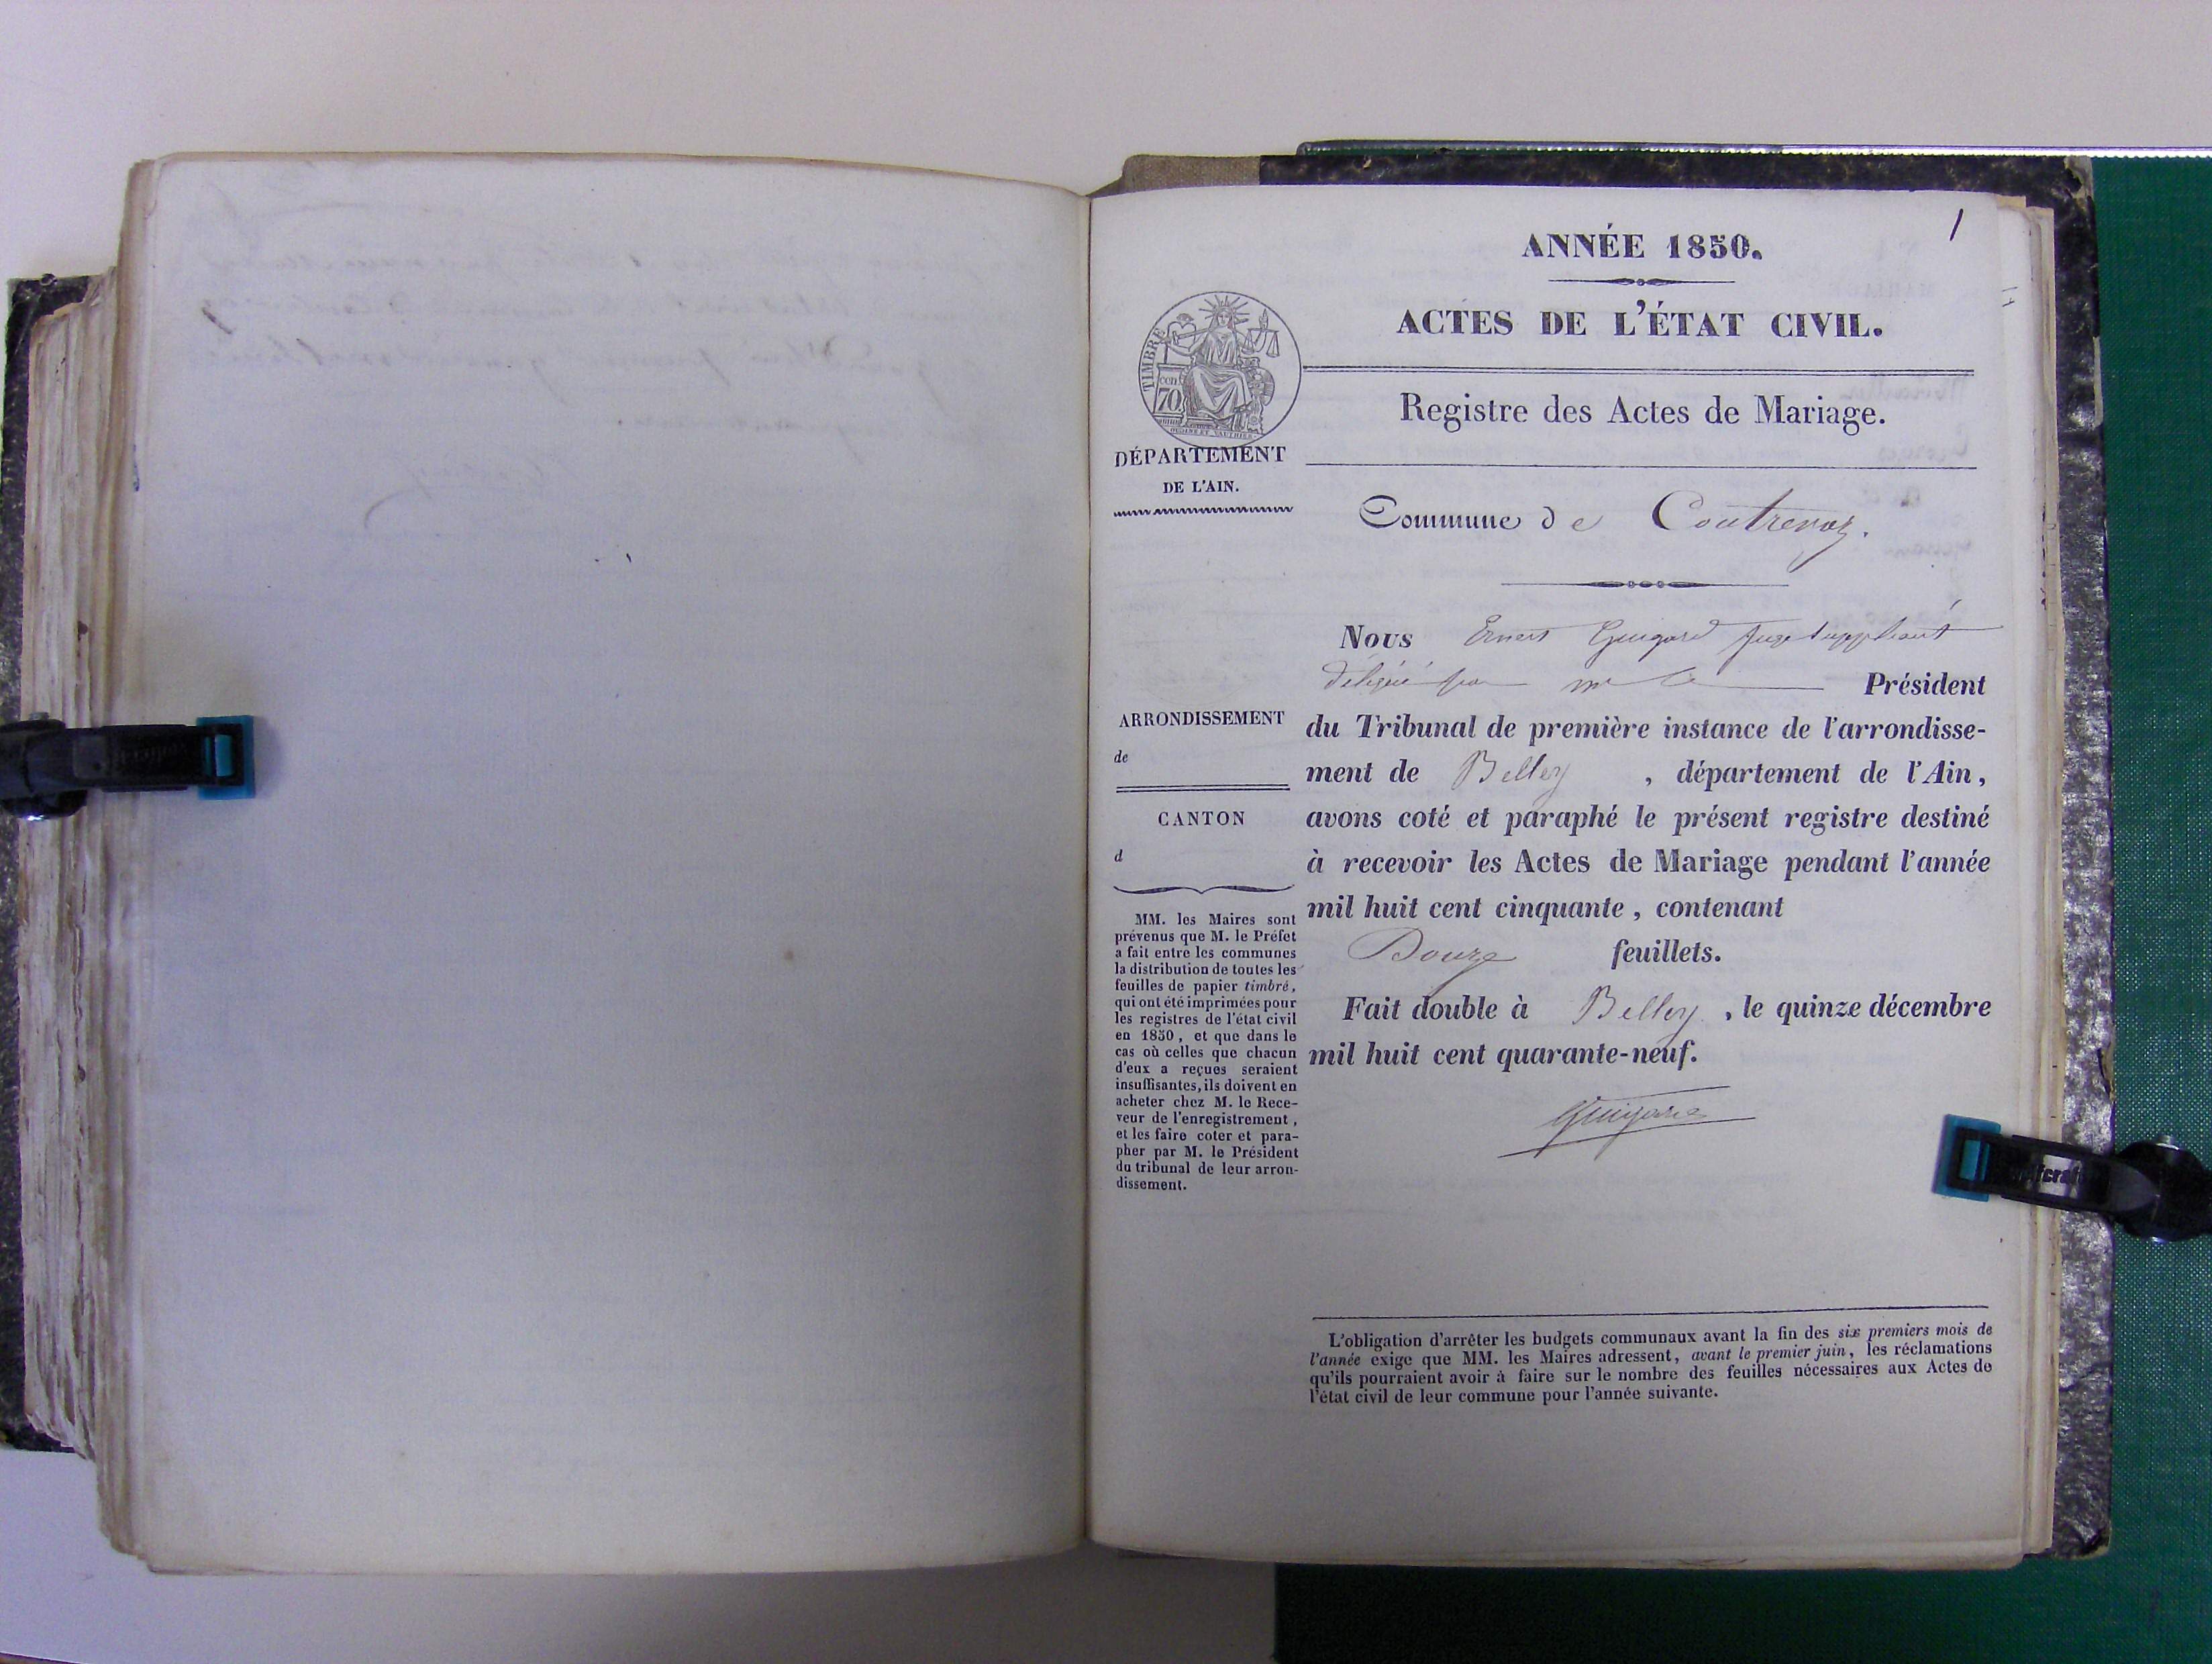 1
ANNÉE 1850.
ACTES DE L'ÉTAT CIVIL.
Registre des Actes de Mariage.
TIMBRE
70
DÉPARTEMENT
DE L'AIN.
Commune de Contrevoz.
Nous Ernest Guigard Juge Suppléant
délégué par mr le Président
du Tribunal de première instance de l'arrondisse-
ment de Belley , département de l'Ain,
avons coté et paraphé le présent registre destiné
à recevoir les Actes de Mariage pendant l'année
mil huit cent cinquante, contenant
Douze feuillets.
Fait double à Belley, le quinze décembre
mil huit cent quarante-neuf.
Guigard
ARRONDISSEMENT
de
CANTON
d
MM. les Maires sont
prévenus que M. le Préfet
a fait entre les communes
la distribution de toutes les
feuilles de papier timbré,
qui ont été imprimées pour
les registres de l'état civil
en 1850, et que dans le
cas où celles que chacun
d'eux a reçues seraient
insuffisantes, ils doivent en
acheter chez M. le Rece-
veur de l'enregistrement,
et les faire coter et para-
pher par M. le Président
du tribunal de leur arron-
dissement.
L'obligation d'arrêter les budgets communaux avant la fin des six premiers mois de
l'année exige que MM. les Maires adressent, avant le premier juin, les réclamations
qu'ils pourraient avoir à faire sur le nombre des feuilles nécessaires aux Actes de
l'état civil de leur commune pour l'année suivante.